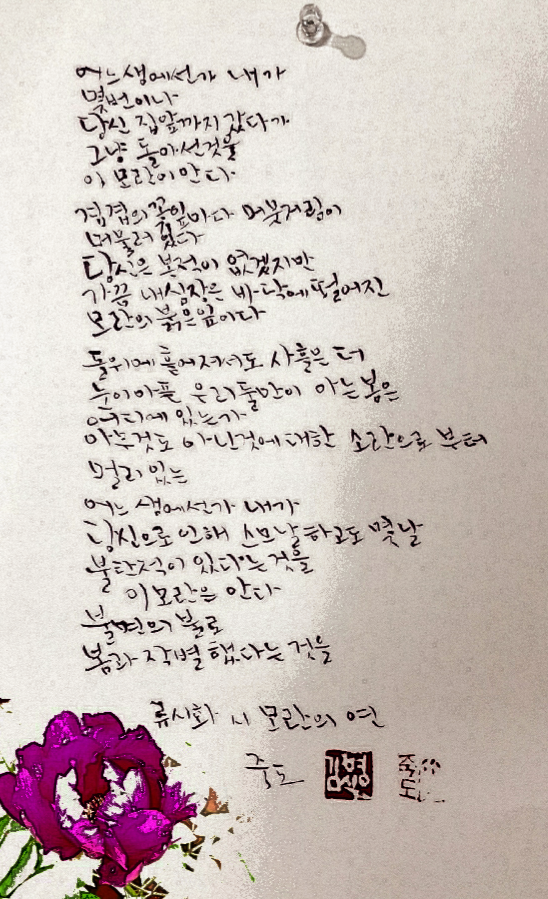 어느생에선가 내가
몇번이나
당신 집앞까지 갔다가
그냥 돌아선것을
이 모란이 안다
겹겹의 꽃잎마다 머뭇거림이
머물러 있다
당신은 본적이 없겠지만
가끔 내심장은 바닥에 떨어진
모란의 붉은잎이다
돌위에 흩어져서도 사흘은 더
눈이아픈 우리둘만이 아는 봄은
어디에 있는가
아무것도 아닌것에 대한 소란으로 부터
멀리 있는
어느 생에선가 내가
당신으로 인해 스무날하고도 몇날
불탄적이 있다는 것을
이 모란은 안다
불면의 불로
봄과 작별했다는 것을
류시화 시 모란의 연
죽도
죽
도